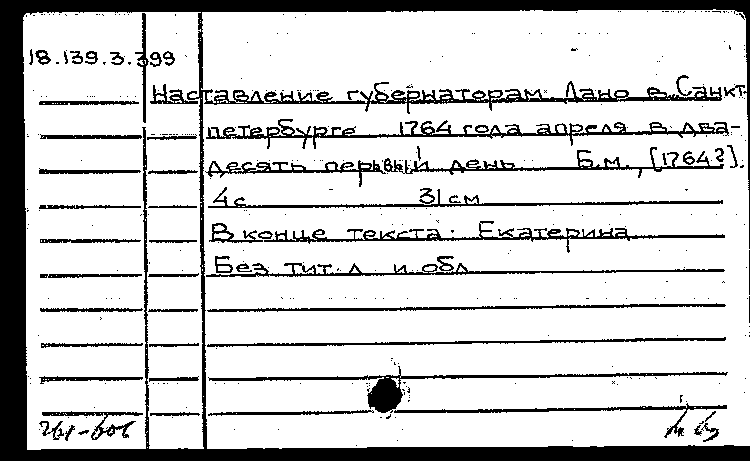 18.139.3.399
Наставление губернаторам. Дано в Санкт-
петербурге 1764 года апреля в два-
десять первый день Б.м., [1764?].
4 с. 31 см
В конце текста: Екатерина
Без тит. л. и обл.